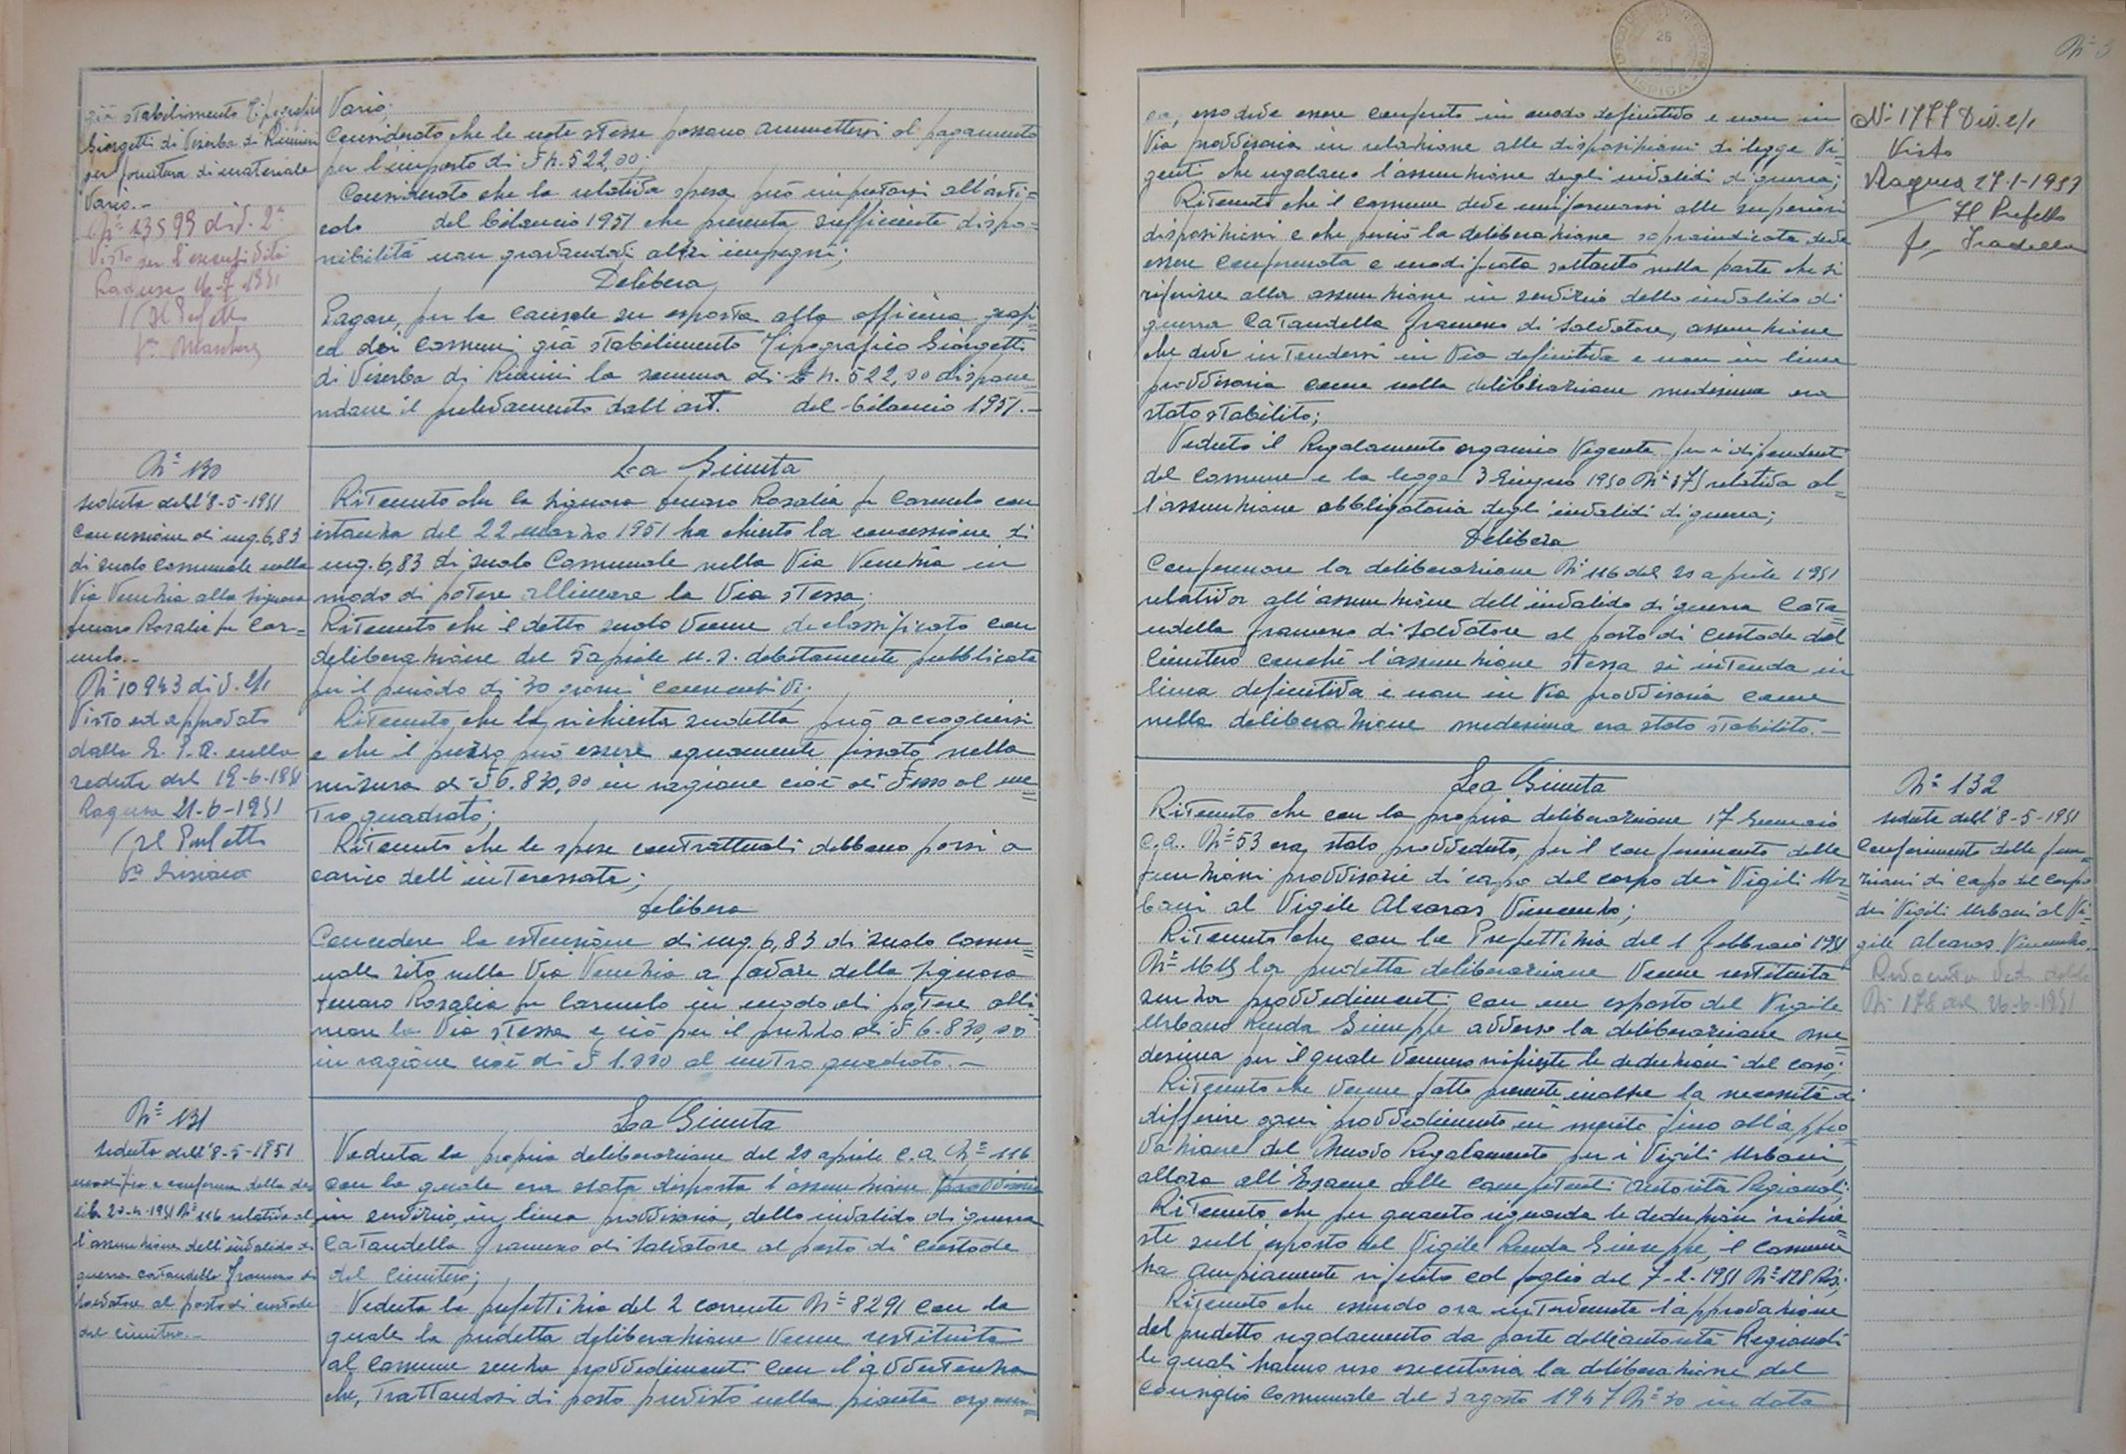 già stabilimento Tipografico
Giorgetti di Viserba di Rimini
per fornitura di materiale
Vario.-
N= 13599 div. 2ª
Visto per l'esecutività
Ragusa 16-7-1951
Il Prefetto
Vario;
Considerato che le note stesse possono ammettersi al pagamento
per l'importo di £n. 522,00;
Considerato che la relativa spesa può imputarsi all'arti=
colo del bilancio 1951 che presenta sufficiente dispo=
nibilità non gravandovi altri impegni;
Delibera
Pagare, per la causale su esposta alla officina grafi=
ca dei Comuni già stabilimento Tipografico Giorgetti
di Viserba di Rimini la somma di £n. 522,00 dispone=
ndone il prelevamento dall'art. del bilancio 1951.-
N= 130
seduta dell'8-5-1951
Concessione di mq. 6,83
di suolo comunale nella
Via Venezia alla Signora
Rosalia fu Car=
melo.-
N= 10943 div. 2/1
Visto ed approvato
dalla G.P.A. nella
seduta del 19-6-1951
Ragusa 21-6-1951
Il Prefetto
La Giunta
Ritenuto che la Signora Rosalia fu Carmelo con
istanza del 22 marzo 1951 ha chiesto la concessione di
mq. 6,83 di suolo Comunale nella Via Venezia in
modo di potere allineare la Via stessa;
Ritenuto che il detto suolo venne declassificato con
deliberazione del 5 aprile u.s. debitamente pubblicata
per il periodo di 30 giorni consecutivi;
Ritenuto che la richiesta suddetta può accogliersi
e che il prezzo può essere equamente fissato nella
misura di £ 6.830,00 in ragione cioè di £ 1000 al me=
tro quadrato;
Ritenuto che le spese contrattuali debbono porsi a
carico dell'interessata;
Delibera
Concedere la estensione di mq. 6,83 di suolo comu=
nale sito nella Via Venezia a favore della Signora
Rosalia fu Carmelo in modo di potere alli=
neare la Via stessa e ciò per il prezzo di £ 6.830,00
in ragione cioè di £ 1.000 al metro quadrato.-
N= 131
seduta dell'8-5-1951
modifica e conferma della de
lib. 20-4-1951 N= 116 relativa al
l'assunzione dell'invalido di
guerra Catandella Francesco di
Salvatore al posto di custode
del cimitero.-
La Giunta
Veduta la propria deliberazione del 20 aprile c.a. N= 116
con la quale era stata disposta l'assunzione provvisoria
in servizio, in linea provvisoria, dello invalido di guerra
Catandella Francesco di Salvatore al posto di custode
del Cimitero;
Veduta la prefettizia del 2 corrente N= 8291 con la
quale la predetta deliberazione venne restituita
al Comune senza provvedimenti con l'avvertenza
che, trattandosi di posto previsto nella pianta organi=
ca, esso deve essere conferito in modo definitivo e non in
Via provvisoria in relazione alle disposizioni di legge vi=
genti che regolano l'assunzione degli invalidi di guerra;
Ritenuto che il comune deve uniformarsi alle superiori
disposizioni e che perciò la deliberazione sopraindicata deve
essere confermata e modificata soltanto nella parte che si
riferisce alla assunzione in servizio dello invalido di
guerra Catandella Francesco di Salvatore, assunzione
che deve intendersi in Via definitiva e non in linea
provvisoria come nella deliberazione medesima era
stato stabilito;
Veduto il Regolamento organico Vigente per i dipendenti
del Comune e la legge 3 Giugno 1950 N= 375 relativa al=
l'assunzione obbligatoria degli invalidi di guerra;
Delibera
Confermare la deliberazione N= 116 del 20 aprile 1951
relativa all'assunzione dell'invalido di guerra Cata=
ndella Francesco di Salvatore al posto di custode del
Cimitero l'assunzione stessa si intenda in
linea definitiva e non in Via provvisoria come
nella deliberazione medesima era stato stabilito.-
N= 1777 Div. 2/1
Visto
Ragusa 27-1-1953
Il Prefetto
La Giunta
Ritenuto che con la propria deliberazione 17 Gennaio
c.a. N= 53 era stato provveduto, per il conferimento delle
funzioni provvisorie di capo del corpo dei Vigili Ur=
bani al Vigile Alcaras Vincenzo;
Ritenuto che con la Prefettizia del 1 febbraio 1951
N= 1615 la predetta deliberazione venne restituita
senza provvedimenti con un esposto del Vigile
Urbano Renda Giuseppe avverso la deliberazione me=
desima per il quale vennero richieste le deduzioni del caso;
Ritenuto che venne fatta presente inoltre la necessità di
differire ogni provvedimento in merito fino all'appro=
vazione del Nuovo Regolamento per i Vigili Urbani,
allora all'Esame delle competenti Autorità Regionali;
Ritenuto che per quanto riguarda le deduzioni richie=
ste sull'esposto del Vigile Renda Giuseppe, il Comune
ha ampiamente riferito col foglio del 7-2-1951 N= 128 Ris.;
Ritenuto che essendo ora intervenuta l'approvazione
del predetto regolamento da parte dell'autorità Regionali
le quali hanno reso esecutoria la deliberazione del
Consiglio Comunale del 3 agosto 1947 N= 30 in data
N= 132
seduta dell'8-5-1951
Conferimento delle fun=
zioni di capo del Corpo
dei Vigili Urbani al Vi=
gile Alcaras Vincenzo.-
N= 178 del 26-6-1951